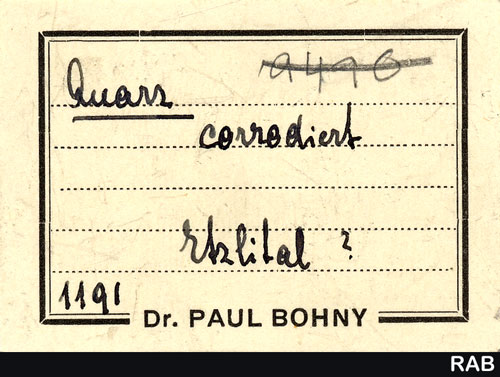 9490
Quarz
corrodiert
Etzlital ?
1191
Dr. PAUL BOHNY
RAB